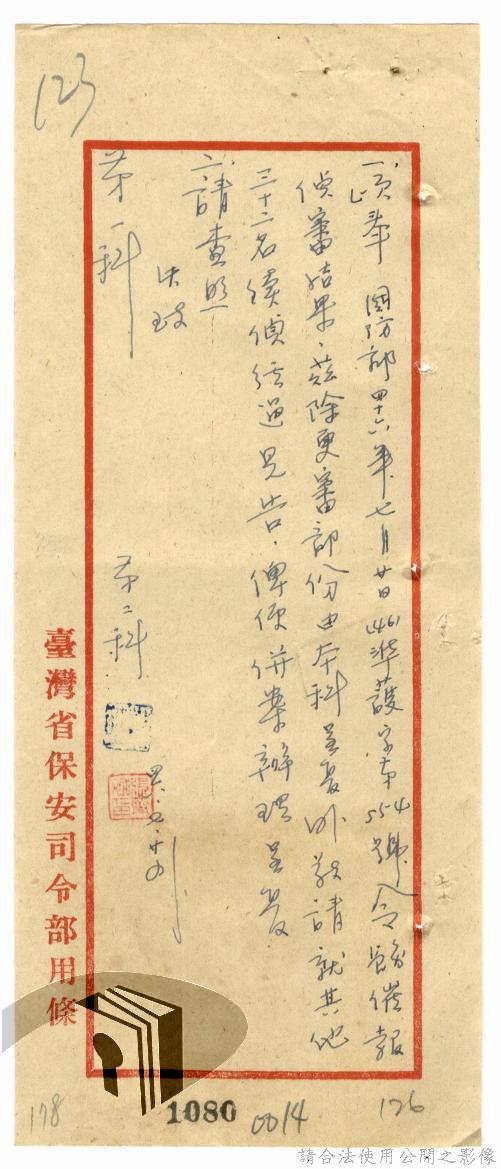 123
一、頃奉 國防部四十六年七月廿日(46)準護字第554號令飭催報
偵審結果，茲除更審部份由本科呈復外敬請就其他
三十二名續偵經過見告，俾便併案辦理呈復
二、請查照
此致
第一科
第二科
臺灣省保安司令部用條
178
1080
0014
126
請合法使用公開之影像